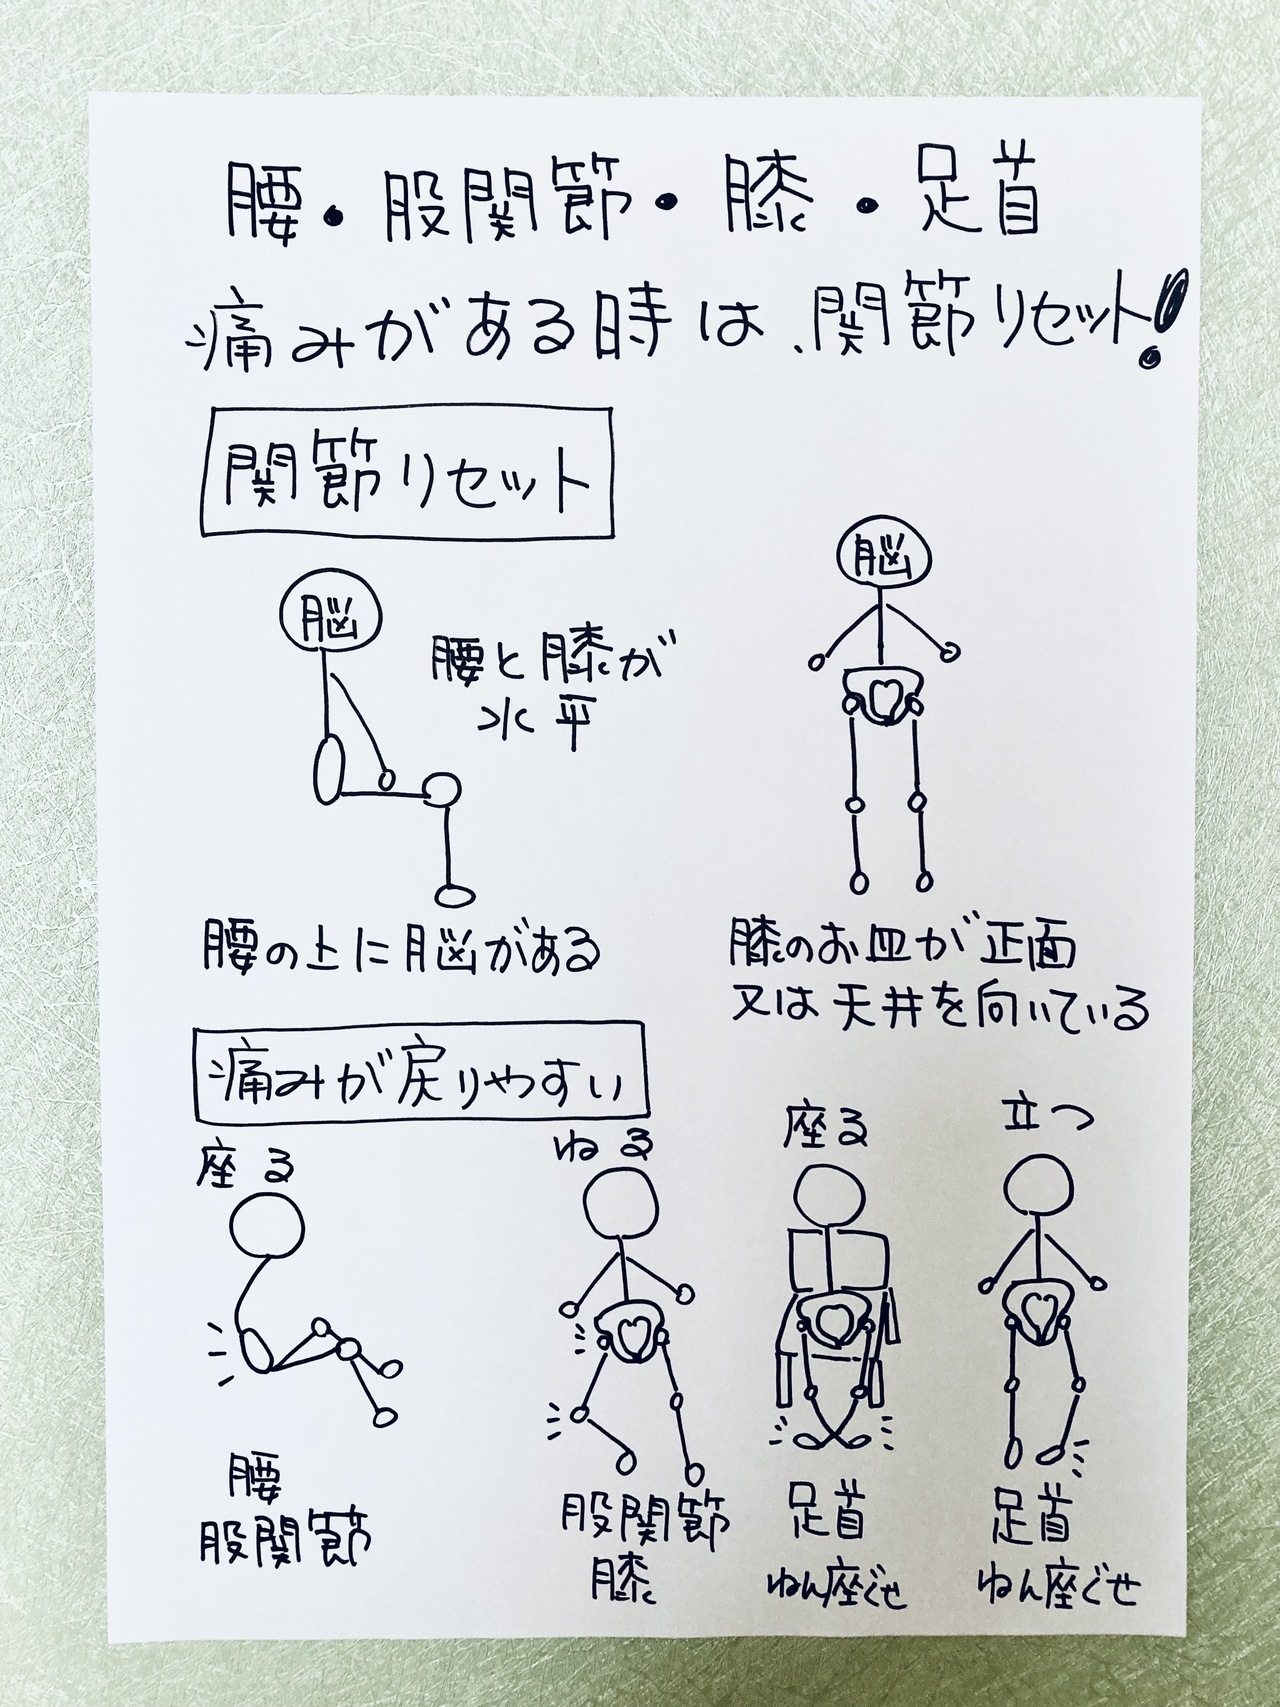 腰・股関節・膝・足首
痛みがある時は、関節リセット!
関節リセット
脳
腰と膝が
水平
腰の上に脳がある
脳
膝のお皿が正面
又は天井を向いている
痛みが戻りやすい
座る
腰
股関節
ねる
股関節
膝
座る
足首
ねん座ぐせ
立つ
足首
ねん座ぐせ